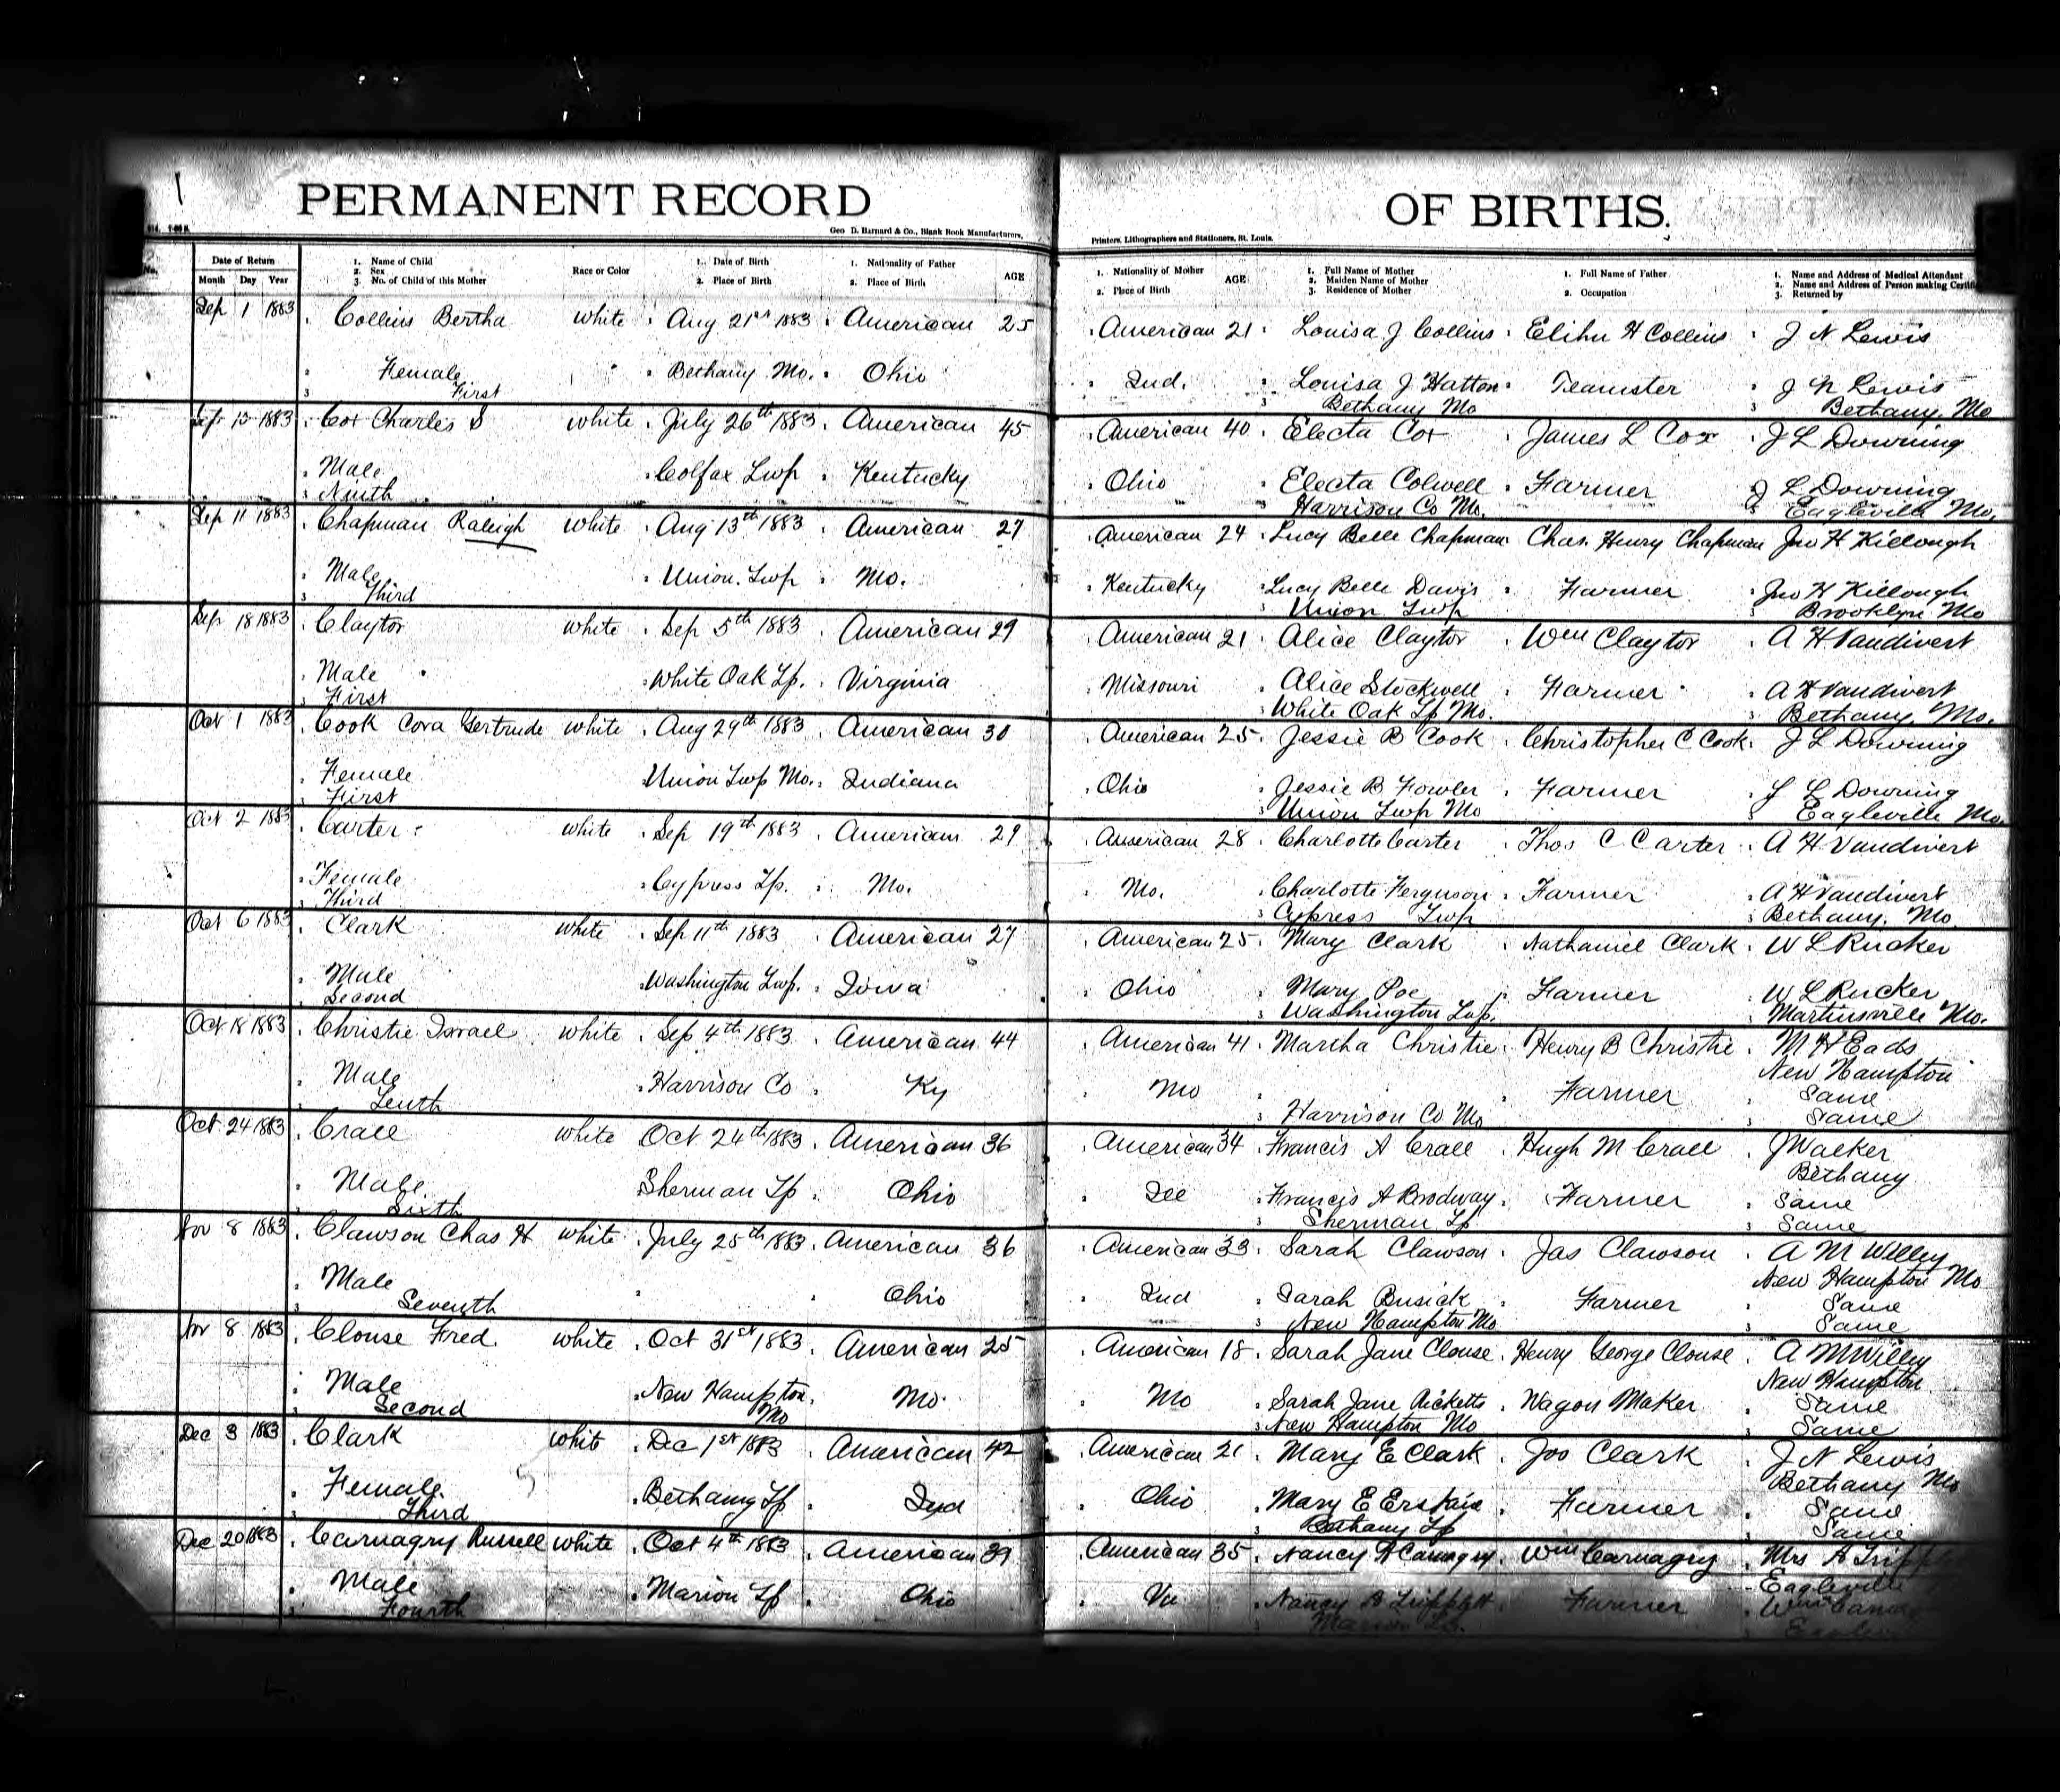 PERMANENT RECORD OF BIRTHS.
Geo D. Barnard & Co., Blank Book Manufacturers, Printers, Lithographers and Stationers, St. Louis.
No.
Date of Return
Month Day Year
1. Name of Child
2. Sex
3. No. of Child of this Mother
Race or Color
1. Date of Birth
2. Place of Birth
1. Nationality of Father
2. Place of Birth
AGE
1. Nationality of Mother
2. Place of Birth
AGE
1. Full Name of Mother
2. Maiden Name of Mother
3. Residence of Mother
1. Full Name of Father
2. Occupation
1. Name and Address of Medical Attendant
2. Name and Address of Person making Certifi
3. Returned by
Sep 1 1883 Collins Bertha white Aug 21st 1883 American 25 American 21 Louisa J Collins Elihu H Collins J N Lewis
Female Bethany Mo. Ohio Ind. Louisa J Hatton Teamster J N Lewis
First Bethany Mo Bethany, Mo
Sep 1883 Cox Charles S white July 26th 1883 American 45 American 40 Electa Cox James L Cox J L Downing
Male Colfax Twp Kentucky Ohio Electa Colwell Farmer J L Downing
Ninth Harrison Co Mo. Eagleville Mo,
Sep 11 1883 Chapman Raleigh white Aug 13th 1883 American 27 American 24 Lucy Belle Chapman Chas. Henry Chapman Jno H Killough
Male Union Twp Mo. Kentucky Lucy Belle Davis Farmer Jno H Killough
Third Union Twp Brooklyn Mo
Sep 18 1883 Claytor white Sep 5th 1883 American 29 American 21 Alice Claytor Wm Claytor A H Vandivert
Male White Oak Tp. Virginia Missouri Alice Stockwell Farmer A H Vandivert
First White Oak Tp Mo. Bethany Mo.
Oct 1 1883 Cook Cora Gertrude white Aug 29th 1883 American 30 American 25 Jessie B Cook Christopher C Cook J L Downing
Female Union Twp Mo. Indiana Ohio Jessie B Fowler Farmer J L Downing
First Union Twp Mo Eagleville Mo.
Oct 2 1883 Carter white Sep 19th 1883 American 29 American 28 Charlotte Carter Thos C Carter A H Vandivert
Female Cypress Tp. Mo. Mo. Charlotte Ferguson Farmer A H Vandivert
Third Cypress Twp Bethany, Mo
Oct 6 1883 Clark white Sep 11th 1883 American 27 American 25 Mary Clark Nathaniel Clark W L Rucker
Male Washington Twp. Iowa Ohio Mary Poe Farmer W L Rucker
Second Washington Twp. Martinsville Mo.
Oct 18 1883 Christie Israel white Sep 4th 1883 American 44 American 41 Martha Christie Henry B Christie M H Eads
New Hampton
Male Harrison Co Ky Mo Farmer Same
Tenth Harrison Co Mo Same
Oct 24 1883 Crall white Oct 24th 1883 American 36 American 34 Francis A Crall Hugh M Crall J Walker
Bethany
Male Sherman Tp Ohio Ill Francis A Brodway Farmer Same
Sixth Sherman Tp Same
Nov 8 1883 Clawson Chas H white July 25th 1883 American 36 American 33 Sarah Clawson Jas Clawson A M Willey
New Hampton Mo
Male Ohio Ind Sarah Busick Farmer Same
Seventh New Hampton Mo Same
Nov 8 1883 Clouse Fred. white Oct 31st 1883 American 25 American 18 Sarah Jane Clouse Henry George Clouse A M Willey
New Hampton
Male New Hampton Mo Mo. Mo Sarah Jane Ricketts Wagon Maker Same
Second New Hampton Mo Same
Dec 3 1883 Clark white Dec 1st 1883 American 42 American 21 Mary E Clark Jos Clark J N Lewis
Bethany Mo
Female Bethany Tp Ind Ohio Mary E Farmer Same
Third Bethany Tp Same
Dec 20 1883 Carnagey Russell white Oct 4th 1883 American 39 American 35 Nancy B Carnagey Wm Carnagey Mrs A
Eagleville
Male Marion Tp Ohio Va Nancy B Tripplett Farmer Wm
Fourth Marion Tp.